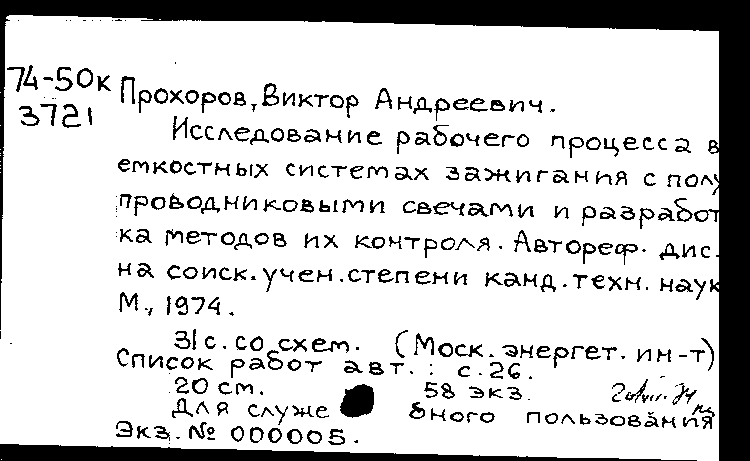 74-50к
3721
Прохоров, Виктор Андреевич.
Исследование рабочего процесса в
емкостных системах зажигания с полу
проводниковыми свечами и разработ
ка методов их контроля. Автореф. дис.
на соиск. учен. степени канд. техн. наук
М., 1974.
31 с. со схем. (Моск. энергет. ин-т)
Список работ авт.: с. 26.
20 см. 58 экз.
Для служе бного пользования
Экз. № 000005.